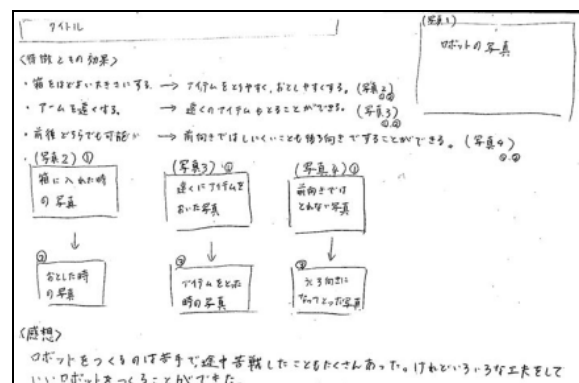 タイトル
(写真1)
ロボットの写真
〈特徴とその効果〉
・箱をほどよい大きさにする。 → アイテムをとりやすく、おとしやすくする。(写真2)
①②
・アームを遠くする。 → 遠くのアイテムもとることができる。(写真3)
①、②
・前後どちらでも可能 → 前向きではしにくいことも後ろ向きですることができる。(写真4)
①、②
(写真2)①
箱に入れた時
の写真
(写真3)①
遠くにアイテムを
おいた写真
(写真4)①
前向きでは
とれない写真
②
おとした時
の写真
②
アイテムをとった
時の写真
②
うしろ向きに
なってとった写真
〈感想〉
ロボットをつくるのは苦手で途中苦戦したこともたくさんあった。けれどいろいろな工夫をして
いいロボットをつくることができた。